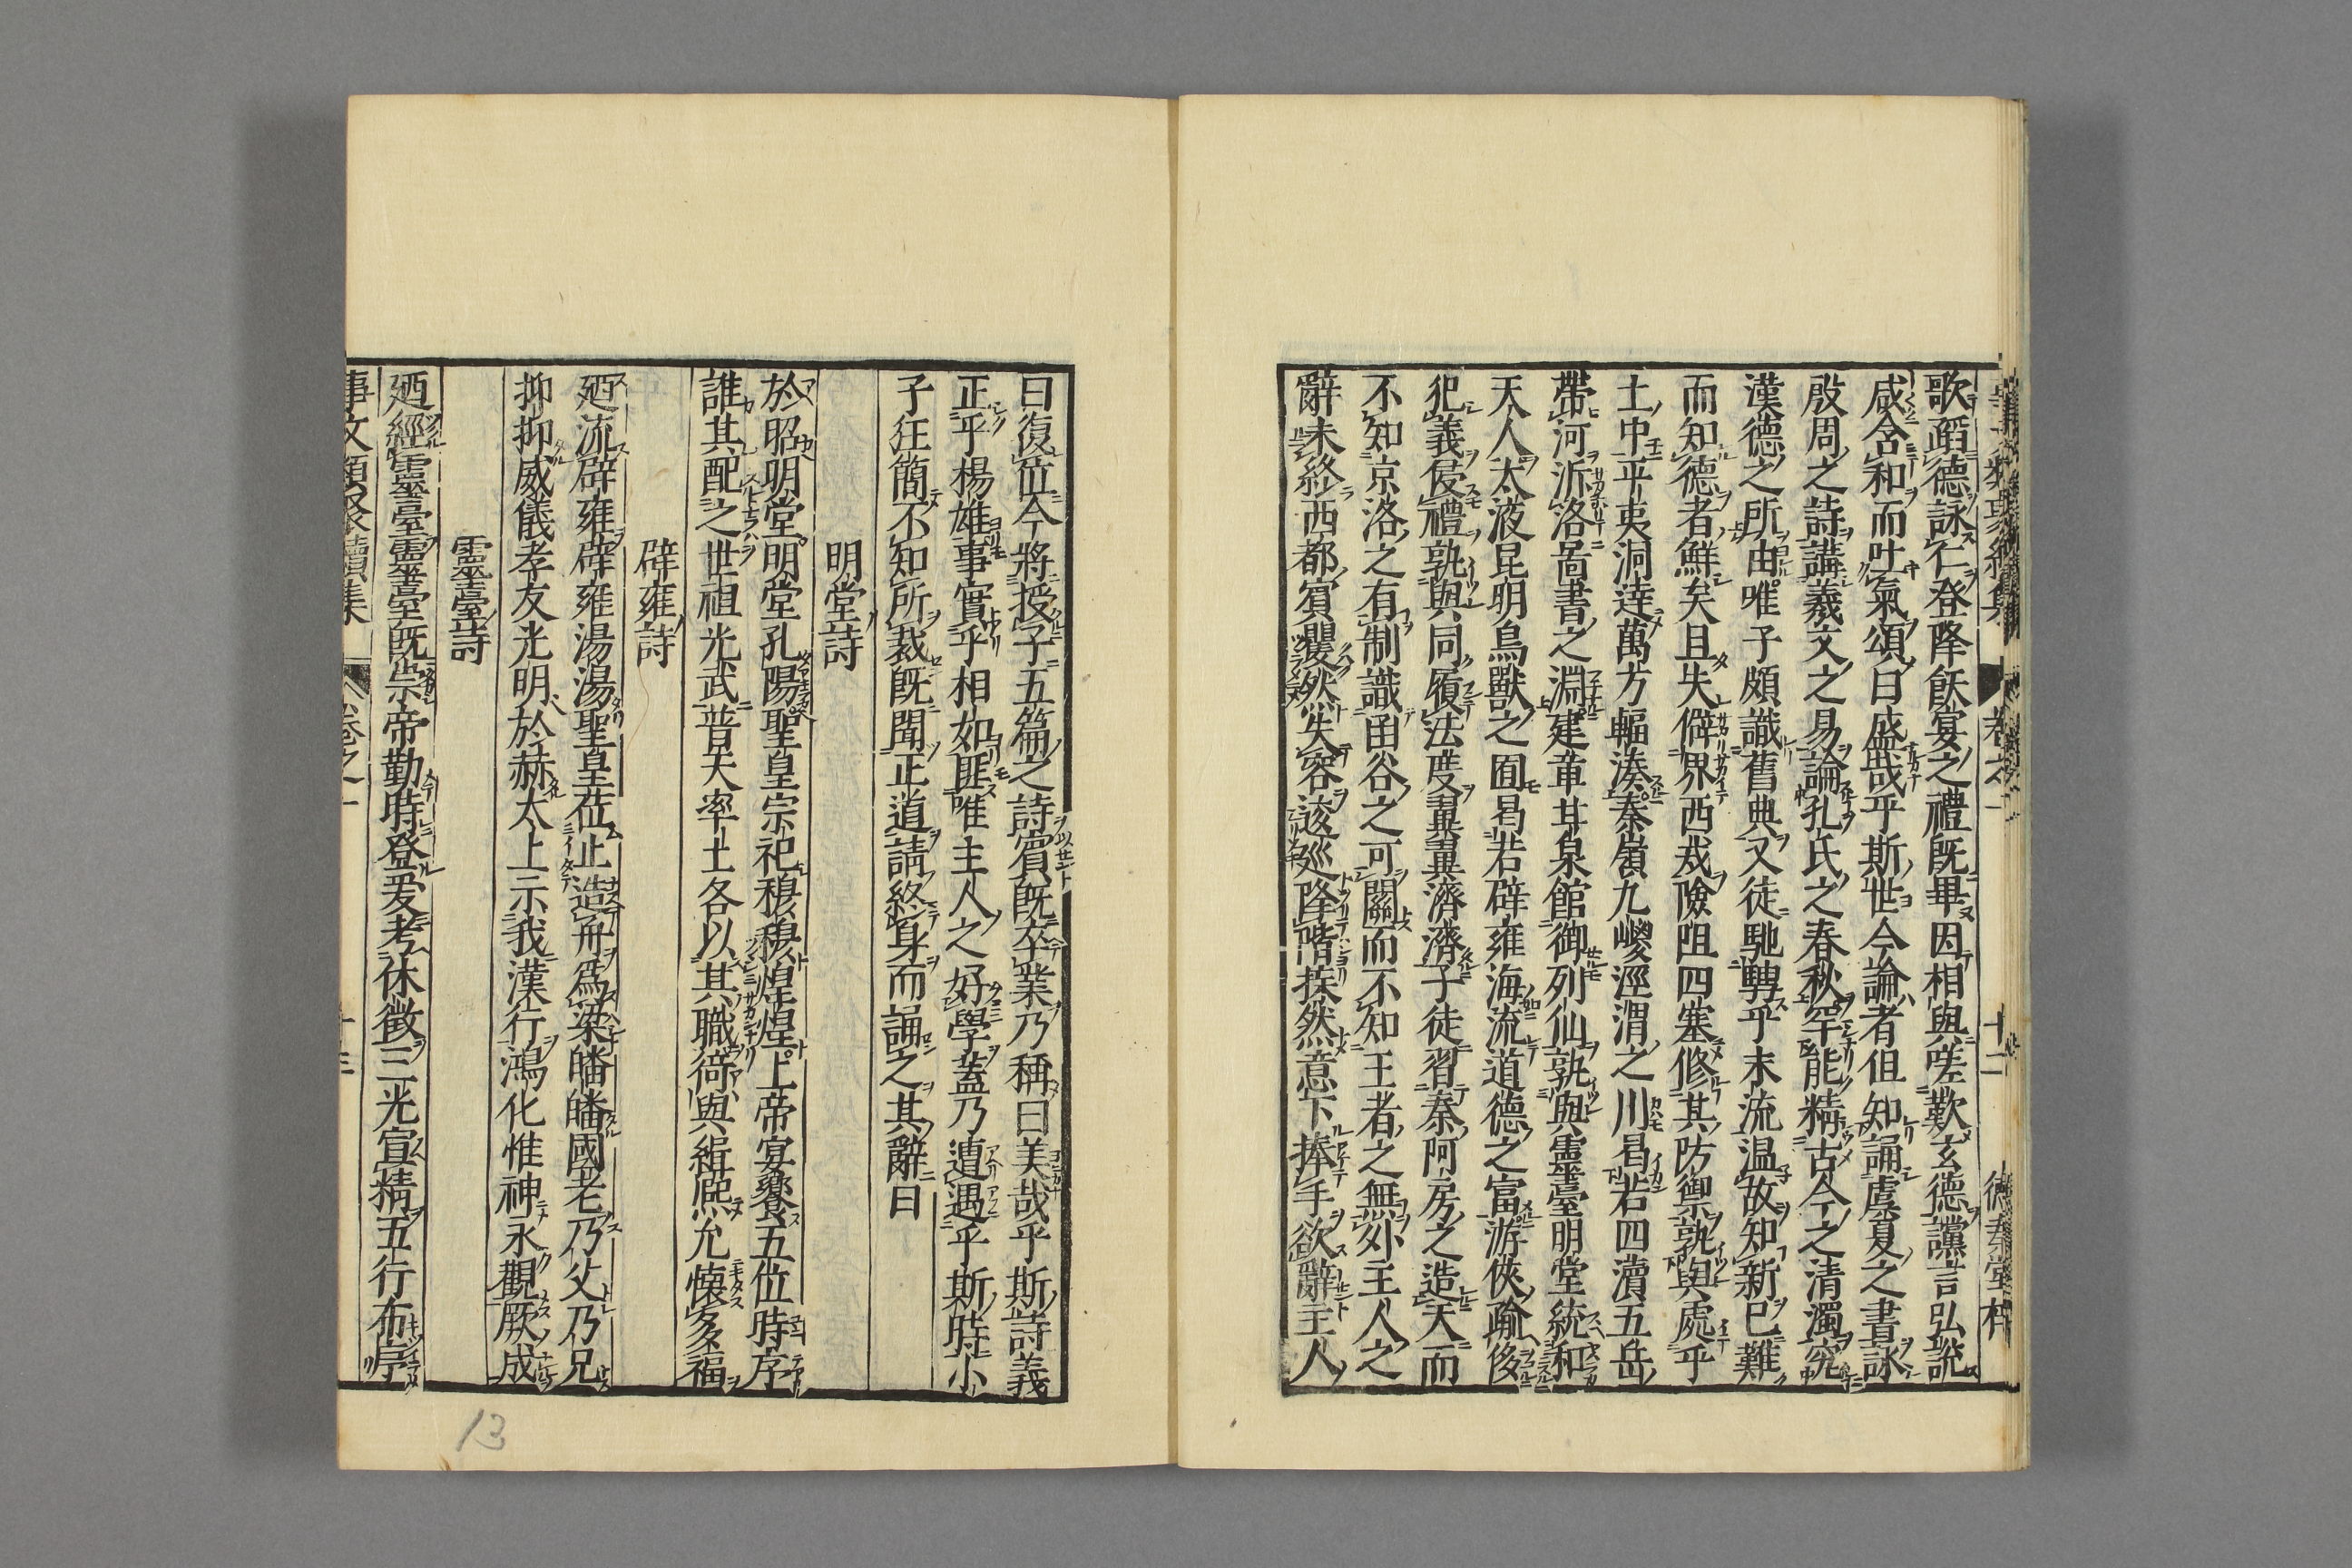 歌蹈德詠仁登降飫宴之禮既畢因相與嗟歎玄德讜言弘說
咸含和而吐氣頌曰盛哉乎斯世今論者但知誦虞夏之書詠
殷周之詩講羲文之易論孔氏之春秋罕能精古今之清濁究
漢德之所由唯子頗識舊典又徒馳騁乎末流温故知新已難
而知德者鮮矣且夫僻界西戎險阻四塞修其防禦孰與處乎
土中平夷洞達萬方輻湊秦嶺九嵕涇渭之川曷若四瀆五岳
帶河泝洛啚書之淵建章甘泉館御列仙孰與靈臺明堂統和
天人太液昆明鳥獸之囿曷若辟雍海流道德之富游俠踰侈
犯義侵禮孰與同履法度翼翼濟濟子徒習秦阿房之造天而
不知京洛之有制識函谷之可關而不知王者之無外主人之
辭未終西都賓矍然失容逡巡降階揲然意下捧手欲辭主人
曰復位今將授子五篇之詩賓既卒業乃稱曰美哉乎斯詩義
正乎楊雄事實乎相如匪唯主人之好學蓋乃遭遇乎斯時小
子狂簡不知所裁既聞正道請終身而誦之其辭曰
明堂詩
於昭明堂明堂孔陽聖皇宗祀穆穆煌煌上帝宴饗五位時序
誰其配之世祖光武普天率土各以其職猗與緝熈允懷多福
辟雍詩
廼流辟雍辟雍湯湯聖皇莅止造舟爲梁皤皤國老乃父乃兄
抑抑威儀孝友光明於赫太上示我漢行鴻化惟神永觀厥成
靈臺詩
廼經靈臺靈臺既崇帝勤時登爰考休徵三光宣精五行布序
事文類聚續集 卷之一
卷之一 十二 德壽堂梓
13